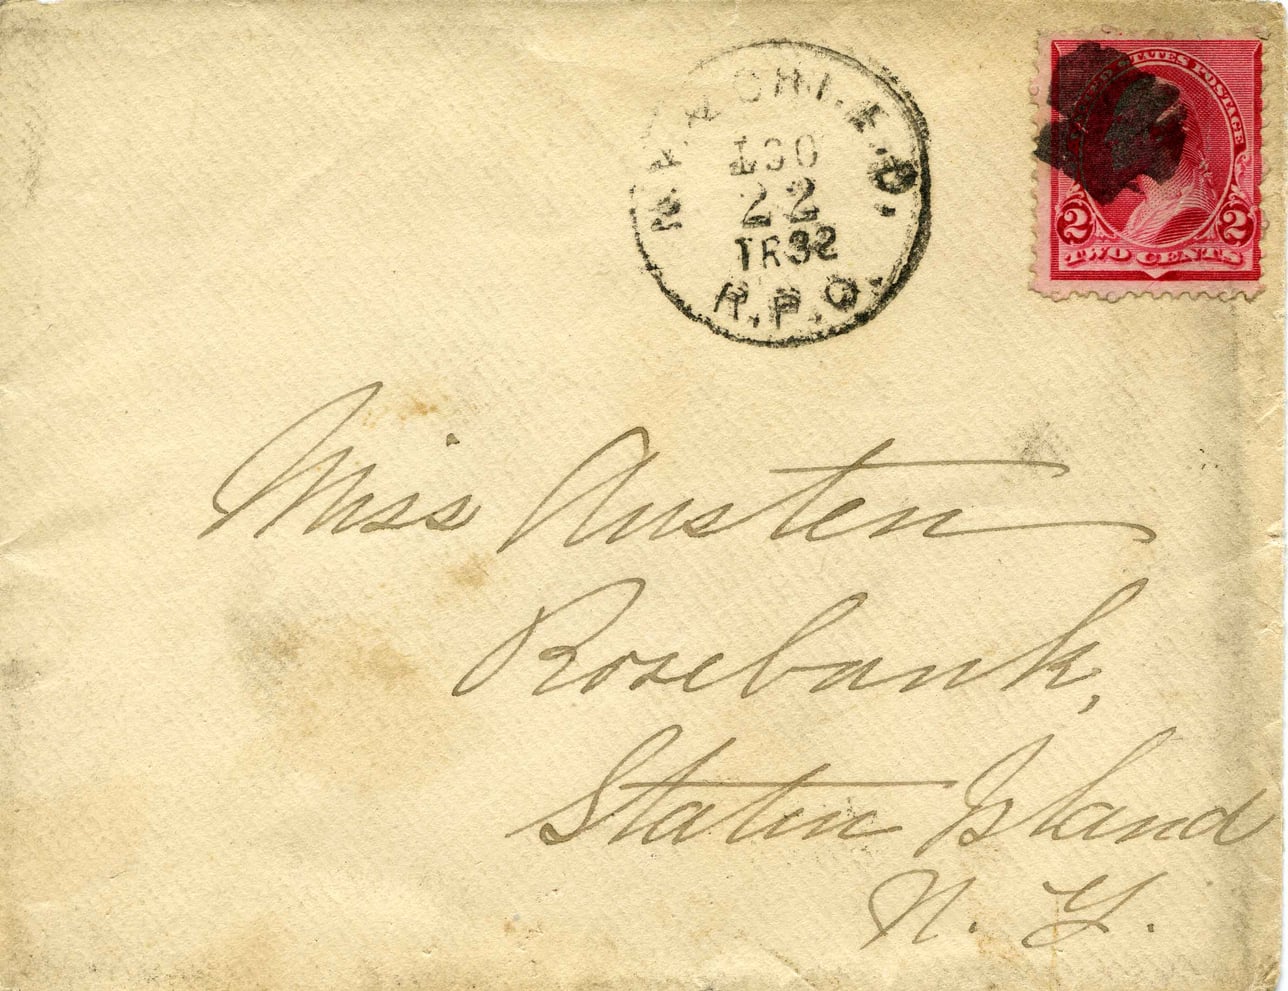 CHI. E.D.
22
TR32
R.P.O.
STATES POSTAGE
2 2
TWO CENTS
Miss Austen
Rosebank,
Staten Island
N. Y.